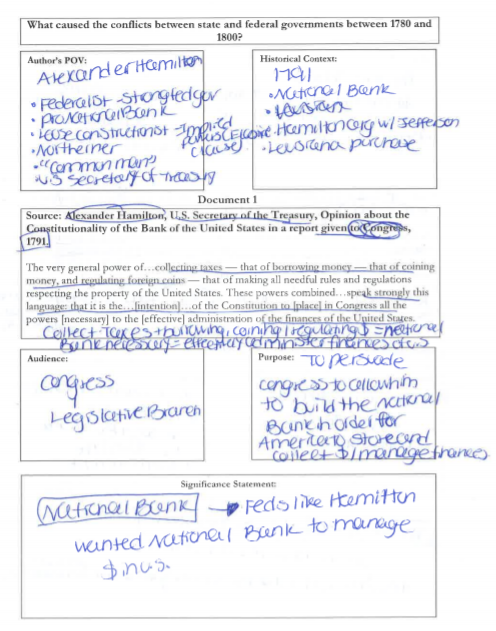 What caused the conflicts between state and federal governments between 1780 and
1800?
Author's POV:
Alexander Hamilton
• Federalist - Strong fed gov
• Pro National Bank
• Loose constructionist - Implied
powers (Elastic
clause)
• Northerner
• "common man"
• U.S Secretary of Treasury
Historical Context:
1791
• National Bank
• Hamilton arg w/ Jefferson
• Louisiana purchase
Document 1
Source: Alexander Hamilton, U.S. Secretary of the Treasury, Opinion about the
Constitutionality of the Bank of the United States in a report given to Congress,
1791
The very general power of…collecting taxes — that of borrowing money — that of coining
money, and regulating foreign coins — that of making all needful rules and regulations
respecting the property of the United States. These powers combined…speak strongly this
language: that it is the…[intention]…of the Constitution to [place] in Congress all the
powers [necessary] to the [effective] administration of the finances of the United States.
Collect Taxes + burrowing, coining, regulating $ = national
Bank necessary = effectively administer finances of U.S
Audience:
Congress
Legislative Branch
Purpose: To persuade
congress to allow him
to build the National
Bank in order for
America to store and
collect $/manage finances
Significance Statement:
National Bank → Feds like Hamilton
wanted National Bank to manage
$ in U.S.